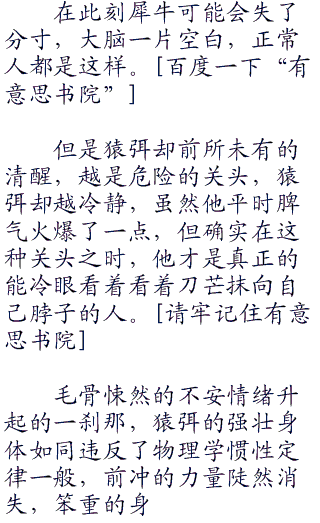 在此刻犀牛可能会失了
分寸，大脑一片空白，正常
人都是这样。[百度一下“有
意思书院”]
但是猿弭却前所未有的
清醒，越是危险的关头，猿
弭却越冷静，虽然他平时脾
气火爆了一点，但确实在这
种关头之时，他才是真正的
能冷眼看着看着刀芒抹向自
己脖子的人。[请牢记住有意
思书院]
毛骨悚然的不安情绪升
起的一刹那，猿弭的强壮身
体如同违反了物理学惯性定
律一般，前冲的力量陡然消
失，笨重的身